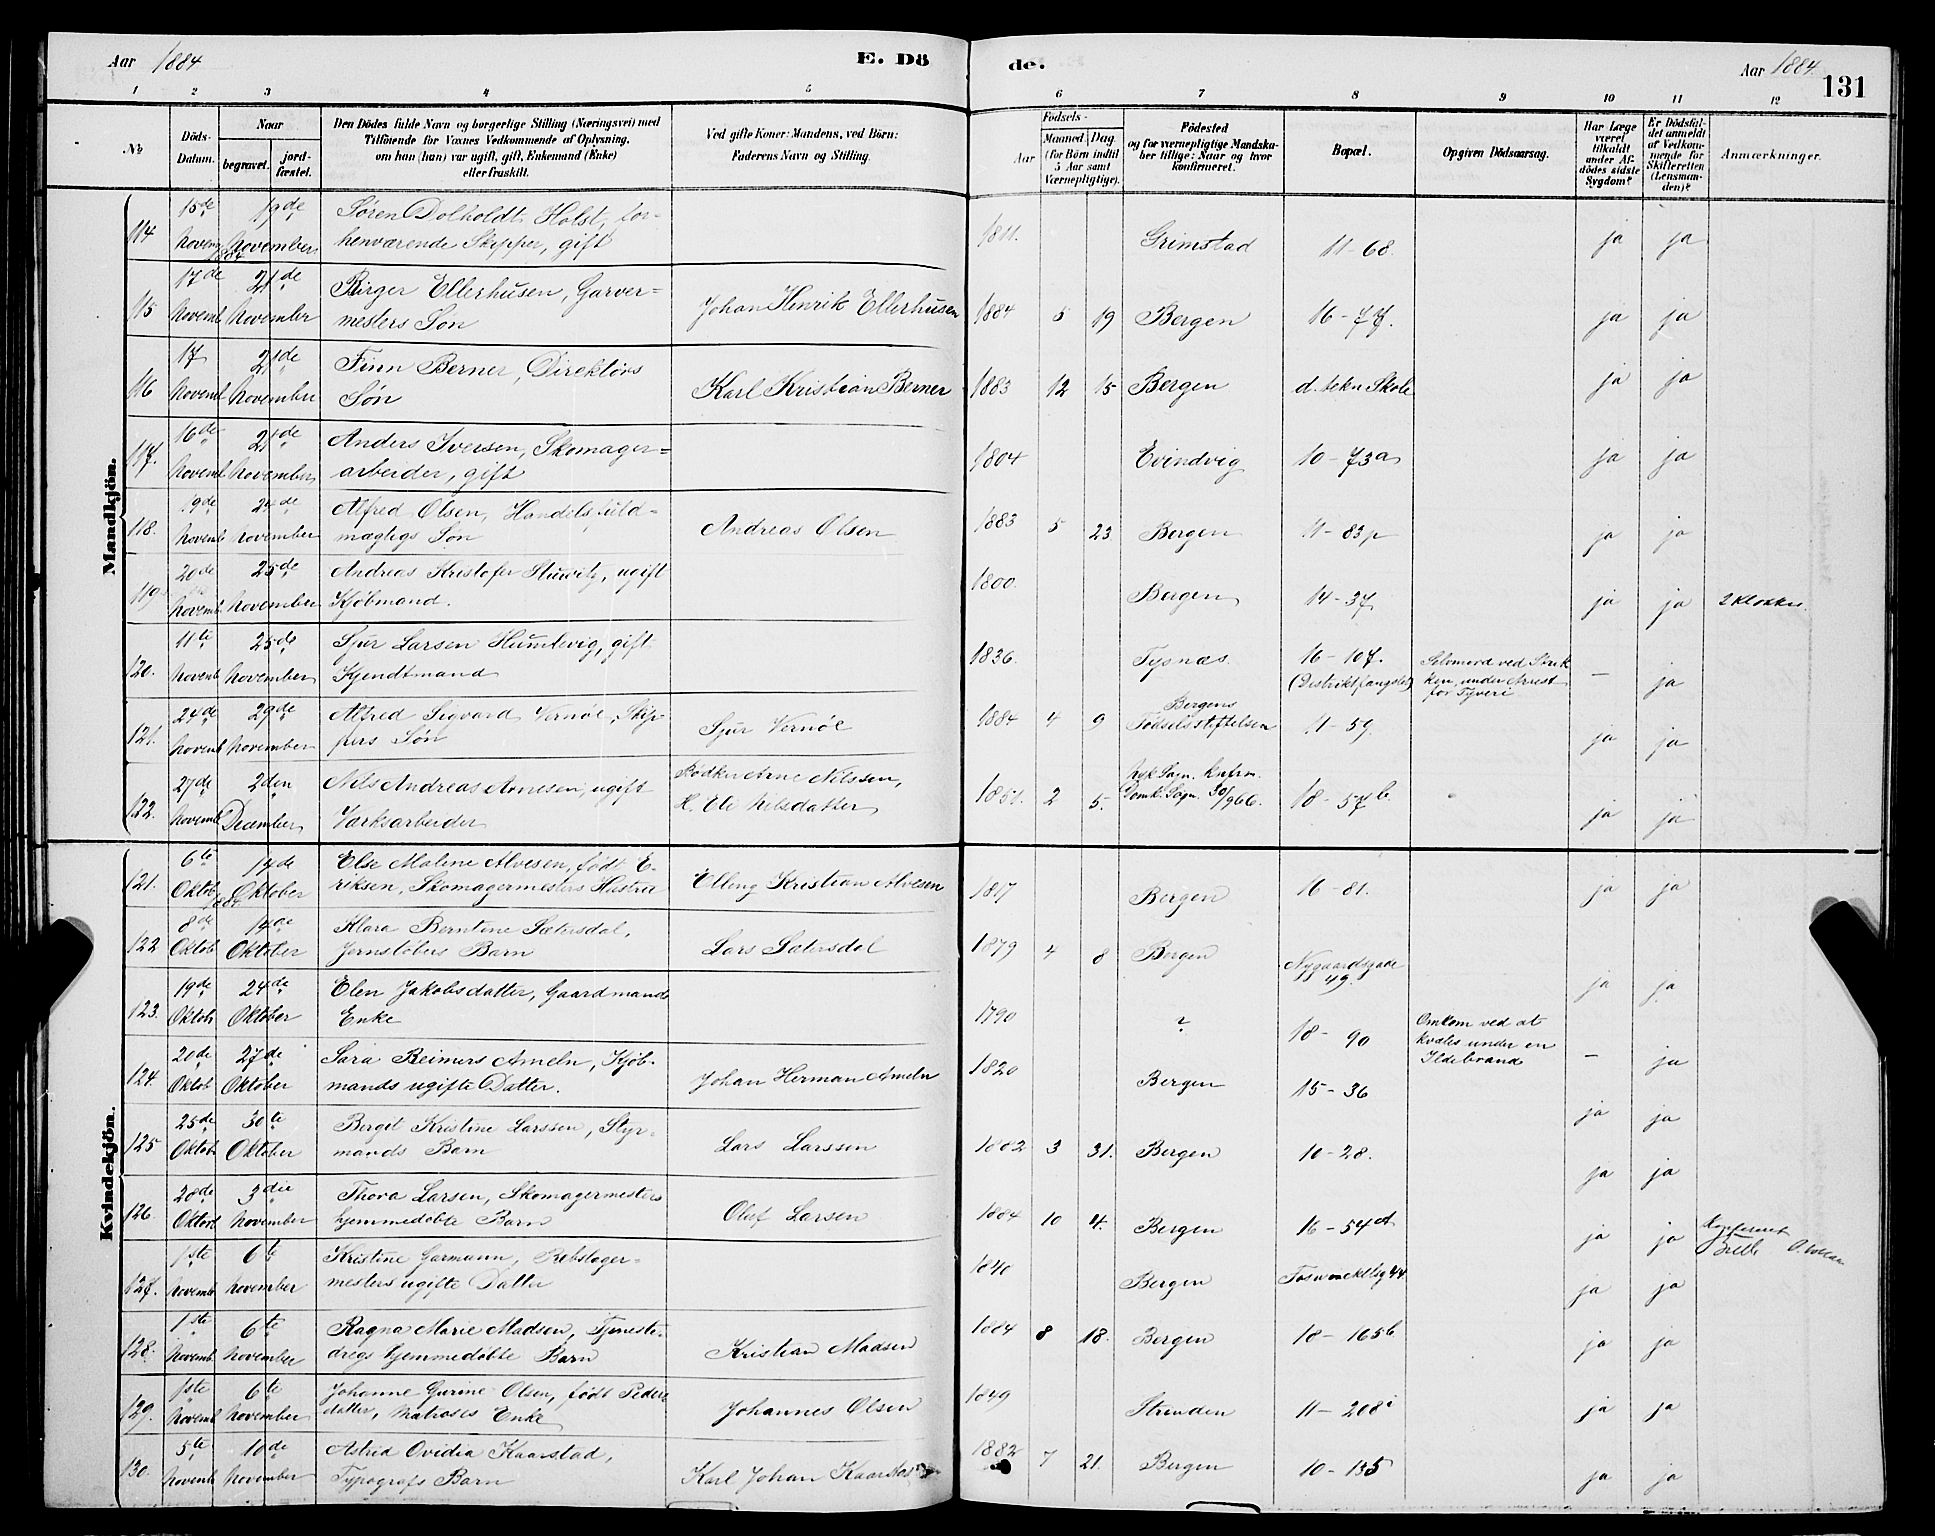 Aar 1884
E. Dö
de.
Aar 1884.
131
1 2 3 4 5 6 7 8 9 10 11 12
No
Döds-Datum.
Naar
begravet.
jord-fæstet.
Den Dödes fulde Navn og borgerlige Stilling (Næringsvei) med
Tilföiende for Voxnes Vedkommende af Oplysning,
om han (hun) var ugift, gift, Enkemand (Enke)
eller fraskilt.
Ved gifte Koner: Mandens, ved Börn:
Faderens Navn og Stilling.
Födsels-
Aar
Maaned
Dag
(for Börn indtil
5 Aar samt
Værnepligtige).
Födested
og for værnepligtige Mandska-
ber tillige: Naar og hvor
konfirmeret.
Bopæl.
Opgiven Dödsaarsag.
Har Læge
været
tilkaldt
under Af-
dödes sidste
Sygdom?
Er Dödsfal-
det anmeldt
af Vedkom-
mende for
Skifteretten
(Lensman-
den)?
Anmærkninger.
Mandkjön.
114 15de Novemb 1884 19de November Søren Dolholdt Holst, for-
henværende Skipper, gift 1811. Grimstad 11-68. ja ja
115 17de Novemb 21de November Birger Ellerhusen, Garver=
mesters Søn Johan Henrik Ellerhusen 1884 5 19 Bergen 16-77. ja ja
116 17 Novemb 21de November Finn Berner, Direktørs
Søn Karl Kristian Berner 1883 12 15 Bergen d. tekn Skole ja ja
117. 16de Novemb 21de November Anders Iversen, Skomager=
arbeider, gift 1804 Evindvig 10-73a ja ja
118. 19de Novemb 24de November Alfred Olsen, Handelsfuld=
mægtigs Søn Andreas Olsen 1883 5 23 Bergen 11-83p ja ja
119. 20de Novemb 25de November Andreas Kristofer Sturvitz, ugift
Kjøbmand. 1800. Bergen 14-37 ja ja 2 Klokker.
120. 11te Novemb 25de November Sjur Larsen Humlevig, gift
Kjendtmand 1836. Tysnæs. 16-107.
(Distriktsfængslet) Selvmord ved Strik
ken, under Arrest
for Tyveri — ja
121. 24de Novemb 29de November Alfred Sigvard Vernøe, Skip-
pers Søn Sjur Vernøe 1884 4 9 Bergens
Fødselsstiftelsen 11-59. ja ja
122. 27de Novemb 2den December Nils Andreas Arnesen, ugift
Værksarbeider Bødker Arne Nilssen,
H. Eli Nilsdatter 1851. 2 5. Nyk Sogn. Knfrm.
Domk. Sogn. 30/9 66. 18-57b ja ja
Kvindekjön.
121. 6te Oktob 1884 14de Oktober Else Malene Alvesen, født E-
riksen, Skomagermesters Hustru Elling Kristian Alvesen 1817 Bergen 16-81. ja ja
122 8de Oktob 14de Oktober Klara Berntine Sætersdal,
Jernstøbers Barn Lars Sætersdal 1879 4 8 Bergen Nygaardsgade
49. ja ja
123. 19de Oktob 24de Oktober Elen Jakobsdatter, Gaardmands
Enke 1790 ? 18-90 Omkom ved at
kvæles under en
Ildebrand — ja
124. 20de Oktob 27de Oktober Sara Reimers Ameln, Kjøb-
mands ugifte Datter. Johan Herman Ameln 1820 Bergen 15-36 ja ja
125 25de Oktob 30te Oktober Bergit Kristine Larssen, Styr-
mands Barn Lars Larssen 1882 3 31. Bergen 10-28. ja ja
126. 28de Oktob 3die November Thora Larsen, Skomagermesters
hjemmedøbte Barn Oluf Larsen 1884 10 4. Bergen 16-54A ja ja
127. 1ste Novemb 6te November Kristine Garmann, Rebslager-
mesters ugifte Datter 1840 Bergen 44 ja ja
128. 1ste Novemb 6te November Ragna Marie Madsen, Tjeneste-
drengs hjemmedøbte Barn Kristian Madsen 1884 8 18. Bergen 18-165b ja ja
129. 1ste Novemb 6te November Johanne Gurine Olsen, født Peders
datter, Matroses Enke Johannes Olsen 1849 Stranden 11-208i ja ja
130. 5te Novemb 10de November Astrid Ovidia Kaarstad,
Typografs Barn Karl Johan Kaarstad 1882 7 21. Bergen 10-135 ja ja